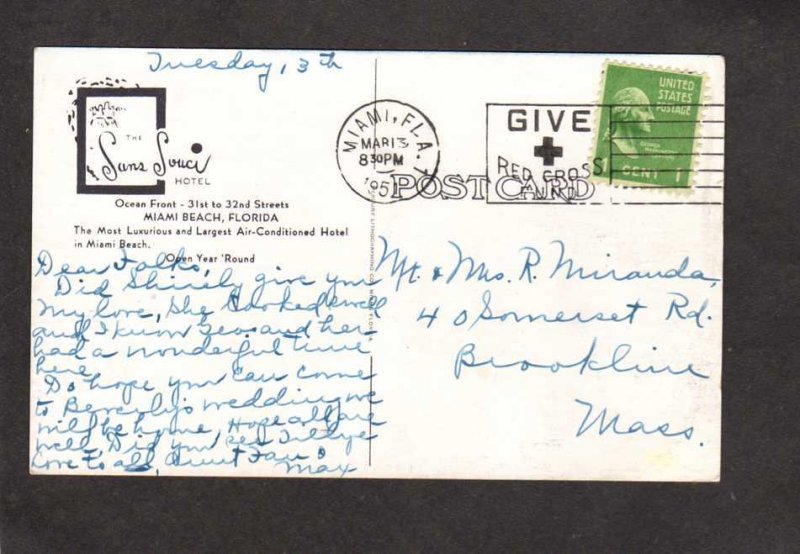 Tuesday, 13th
THE
Sans Souci
HOTEL
Ocean Front - 31st to 32nd Streets
MIAMI BEACH, FLORIDA
The Most Luxurious and Largest Air-Conditioned Hotel
in Miami Beach.
Open Year 'Round
Dear Folks,
Did Shirely give you
my love, She looked swell
and I know Leo and her
had a wonderful time
here.
Do hope you can come
to Beverly's wedding we
will be home, Hope all are
well, Did you see Tillye
Love to all Aunt Fan &
Max
MIAMI, FLA.
MAR 13
8 30 PM
195
GIVE
RED CROSS
FUND
UNITED
STATES
POSTAGE
1 CENT 1
POST CARD
Mr. & Mrs. R. Miranda,
40 Somerset Rd.
Brookline
Mass.